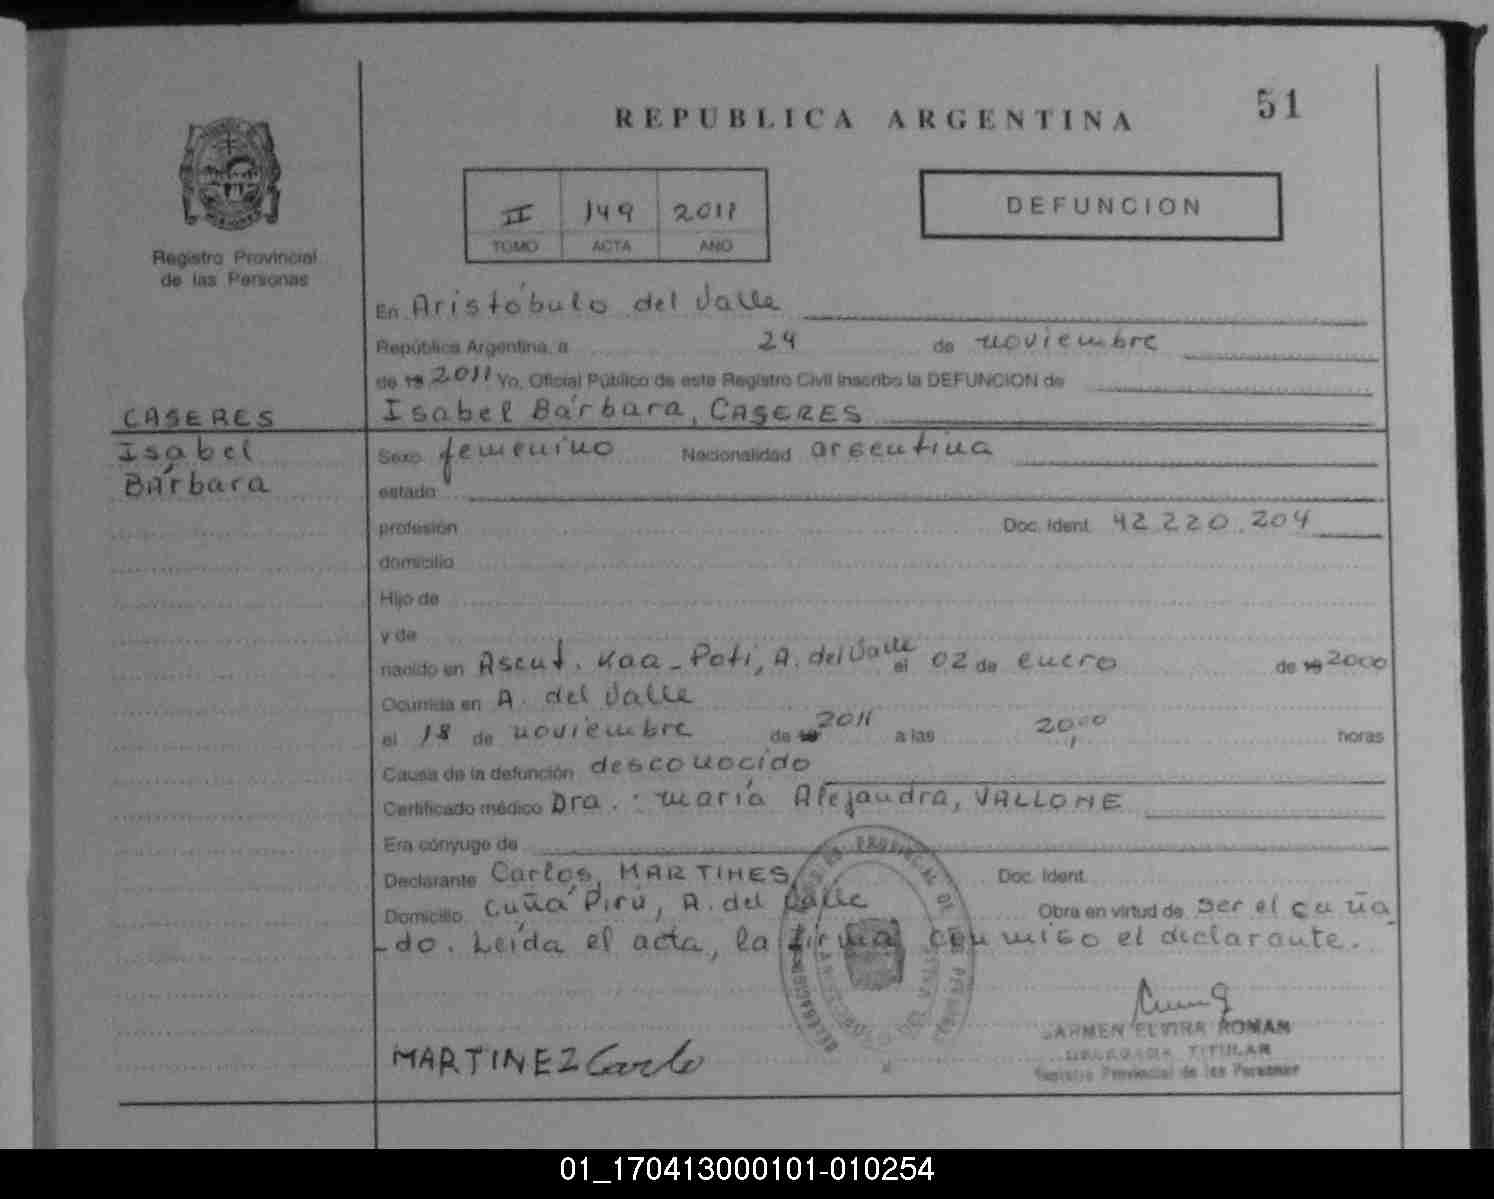 51
REPUBLICA ARGENTINA
II 149 2011
TOMO ACTA AÑO
DEFUNCION
Registro Provincial
de las Personas
En Aristóbulo del Valle
República Argentina, a 24 de noviembre
de 19 2011 Yo, Oficial Público de este Registro Civil inscribo la DEFUNCION de
CASERES Isabel Bárbara, CASERES
Isabel Sexo femenino Nacionalidad argentina
Bárbara estado
profesión Doc. Ident. 42.220.204
domicilio
Hijo de
y de
nacido en Asent. Kaa-Poti, A. del Valle el 02 de enero de 19 2000
Ocurrida en A. del Valle
el 18 de noviembre de 19 2011 a las 20,00 horas
Causa de la defunción desconocido
Certificado médico Dra.: María Alejandra, VALLONE
Era cónyuge de
Declarante Carlos, MARTINES Doc. Ident.
Domicilio Cuñá Pirú, A. del Valle Obra en virtud de ser el cuña
-do. Leída el acta, la firma conmigo el declarante.
MARTINEZ Carlo
CARMEN ELVIRA ROMAN
DELEGADA TITULAR
Registro Provincial de las Personas
01_170413000101-010254